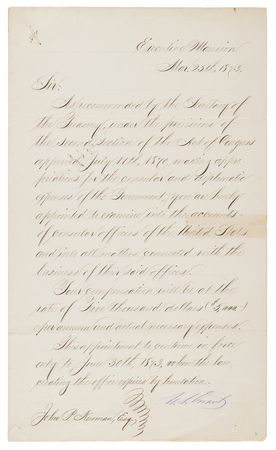 Executive Mansion
Mar. 25th, 1873.
Sir:
As recommended by the Secretary of
the Treasury, under the provisions of
the second section of the Act of Congress
approved July 11th 1870, making appro-
priations for the consular and diplomatic
expenses of the Government, you are hereby
appointed to examine into the accounts
of consular officers of the United States
and into all matters connected with the
business of their said offices.
Your compensation will be at the
rate of Five thousand dollars ($5,000)
per annum and actual necessary expenses.
This appointment to continue in force
only to June 30th, 1873, when the law,
creating the office expires by limitation.
U. S. Grant
John P. Newman, Esq.